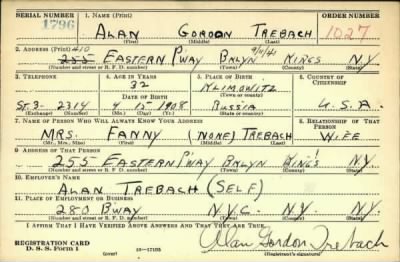 SERIAL NUMBER 1. NAME (Print) ORDER NUMBER
1796 ALAN GORDON TREBACH 1027
(First) (Middle) (Last)
2. ADDRESS (Print) 410 9/11/41
255 EASTERN P'WAY BKLYN KINGS N.Y.
(Number and street or R. F. D. number) (Town) (County) (State)
3. TELEPHONE 4. AGE IN YEARS 5. PLACE OF BIRTH 6. COUNTRY OF CITIZENSHIP
32 KLIMOWITZ
DATE OF BIRTH (Town or county)
ST. 3- 2314 4 15 1908 RUSSIA U.S.A.
(Exchange) (Number) (Mo.) (Day) (Yr.) (State or country)
7. NAME OF PERSON WHO WILL ALWAYS KNOW YOUR ADDRESS 8. RELATIONSHIP OF THAT PERSON
MRS. FANNY (NONE) TREBACH WIFE
(Mr., Mrs., Miss) (First) (Middle) (Last)
9. ADDRESS OF THAT PERSON
255 EASTERN P'WAY BKLYN KING'S N.Y.
(Number and street or R. F. D. number) (Town) (County) (State)
10. EMPLOYER'S NAME
ALAN TREBACH (SELF)
11. PLACE OF EMPLOYMENT OR BUSINESS
280 B'WAY N.Y.C. N.Y. N.Y.
(Number and street or R. F. D. number) (Town) (County) (State)
I AFFIRM THAT I HAVE VERIFIED ABOVE ANSWERS AND THAT THEY ARE TRUE.
REGISTRATION CARD
D. S. S. Form 1 (over) Alan Gordon Trebach
(Registrant's signature)